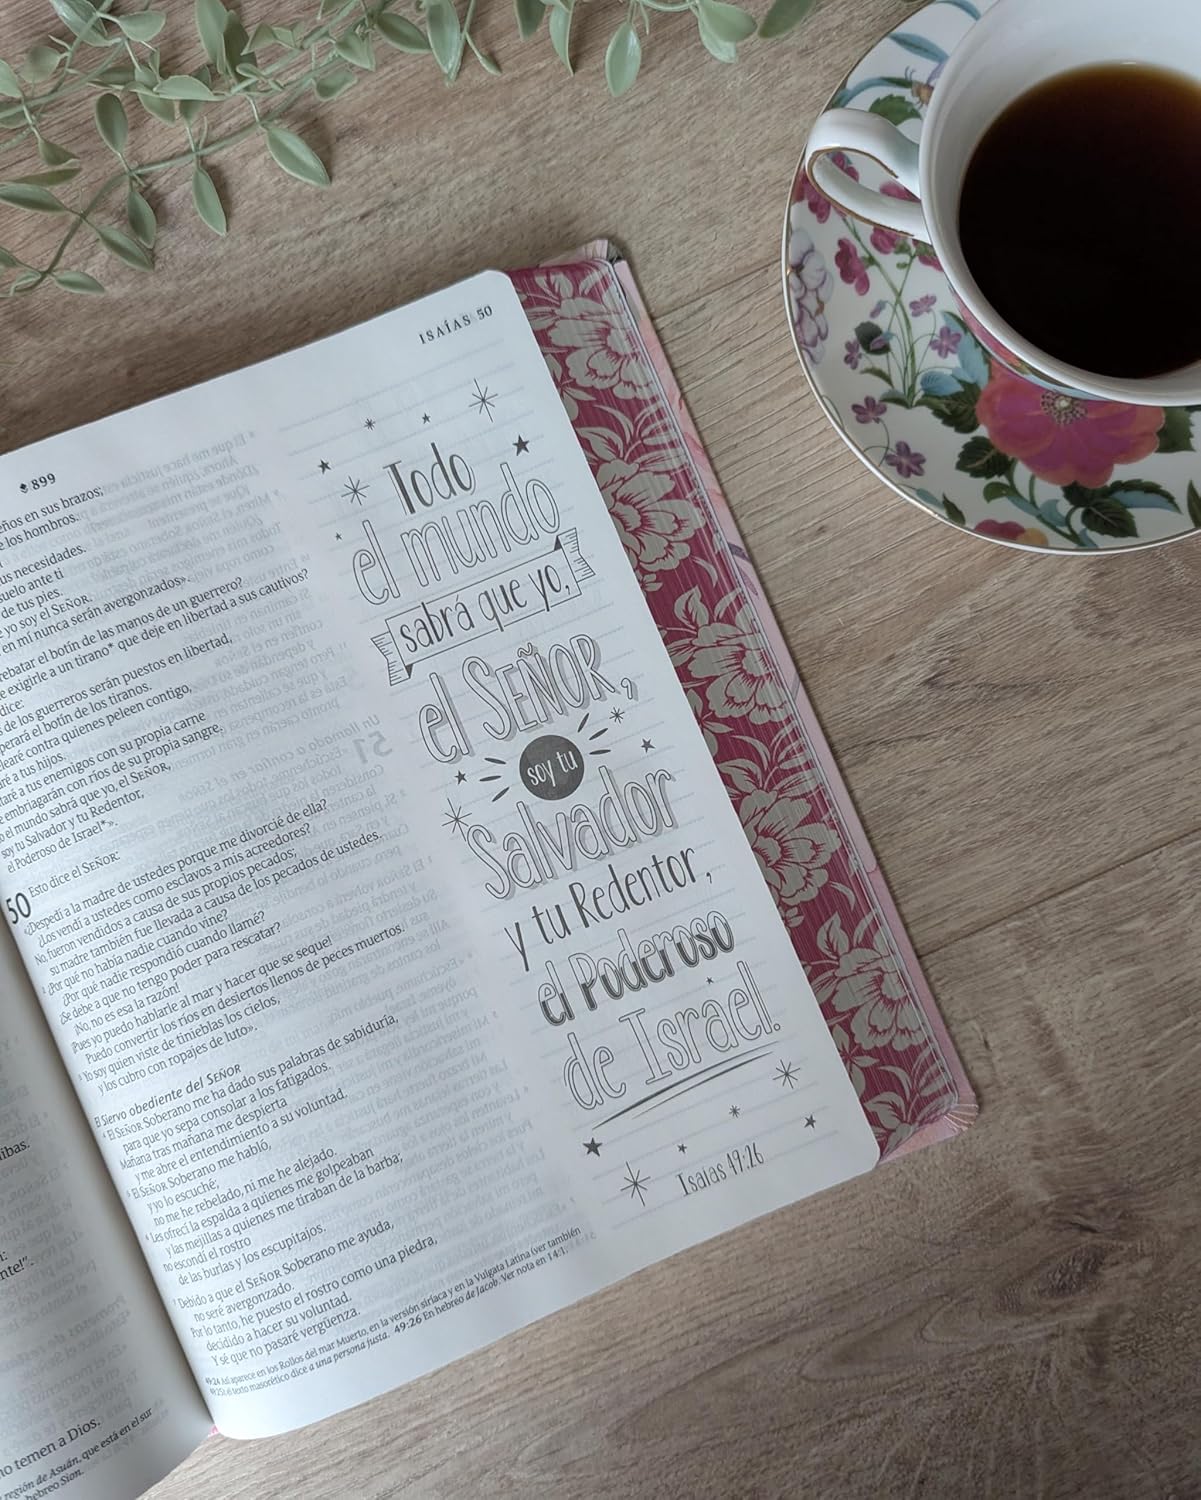 ISAÍAS 50
899
eños en sus brazos;
los hombros.
us necesidades.
suelo ante ti
de tus pies.
yo soy el SEÑOR.
en mí nunca serán avergonzados».
rebatar el botín de las manos de un guerrero?
exigirle a un tirano* que deje en libertad a sus cautivos?
dice:
de los guerreros serán puestos en libertad,
perará el botín de los tiranos.
learé contra quienes peleen contigo,
aré a tus hijos.
taré a tus enemigos con su propia carne
embriagarán con ríos de su propia sangre,
o el mundo sabrá que yo, el SEÑOR,
soy tu Salvador y tu Redentor,
el Poderoso de Israel*».
50 Esto dice el SEÑOR:
«¿Despedí a la madre de ustedes porque me divorcié de ella?
¿Los vendí a ustedes como esclavos a mis acreedores?
No, fueron vendidos a causa de sus propios pecados;
su madre también fue llevada a causa de los pecados de ustedes.
2 ¿Por qué no había nadie cuando vine?
¿Por qué nadie respondió cuando llamé?
¿Se debe a que no tengo poder para rescatar?
¡No, no es esa la razón!
¡Pues yo puedo hablarle al mar y hacer que se seque!
Puedo convertir los ríos en desiertos llenos de peces muertos.
3 Yo soy quien viste de tinieblas los cielos,
y los cubro con ropajes de luto».
El Siervo obediente del SEÑOR
4 El SEÑOR Soberano me ha dado sus palabras de sabiduría,
para que yo sepa consolar a los fatigados.
Mañana tras mañana me despierta
y me abre el entendimiento a su voluntad.
5 El SEÑOR Soberano me habló,
y yo lo escuché;
no me he rebelado, ni me he alejado.
6 Les ofrecí la espalda a quienes me golpeaban
y las mejillas a quienes me tiraban de la barba;
no escondí el rostro
de las burlas y los escupitajos.
7 Debido a que el SEÑOR Soberano me ayuda,
no seré avergonzado.
Por lo tanto, he puesto el rostro como una piedra,
decidido a hacer su voluntad.
Y sé que no pasaré vergüenza.
49:24 Así aparece en los Rollos del mar Muerto, en la versión siríaca y en la Vulgata Latina (ver también
49:25); el texto masorético dice a una persona justa. 49:26 En hebreo de Jacob. Ver nota en 14:1.
Todo
el mundo
sabrá que yo,
el SEÑOR,
soy tu
Salvador
y tu Redentor,
el Poderoso
de Israel.
Isaías 49:26
temen a Dios.
región de Asuán, que está en el sur
hebreo Sion.